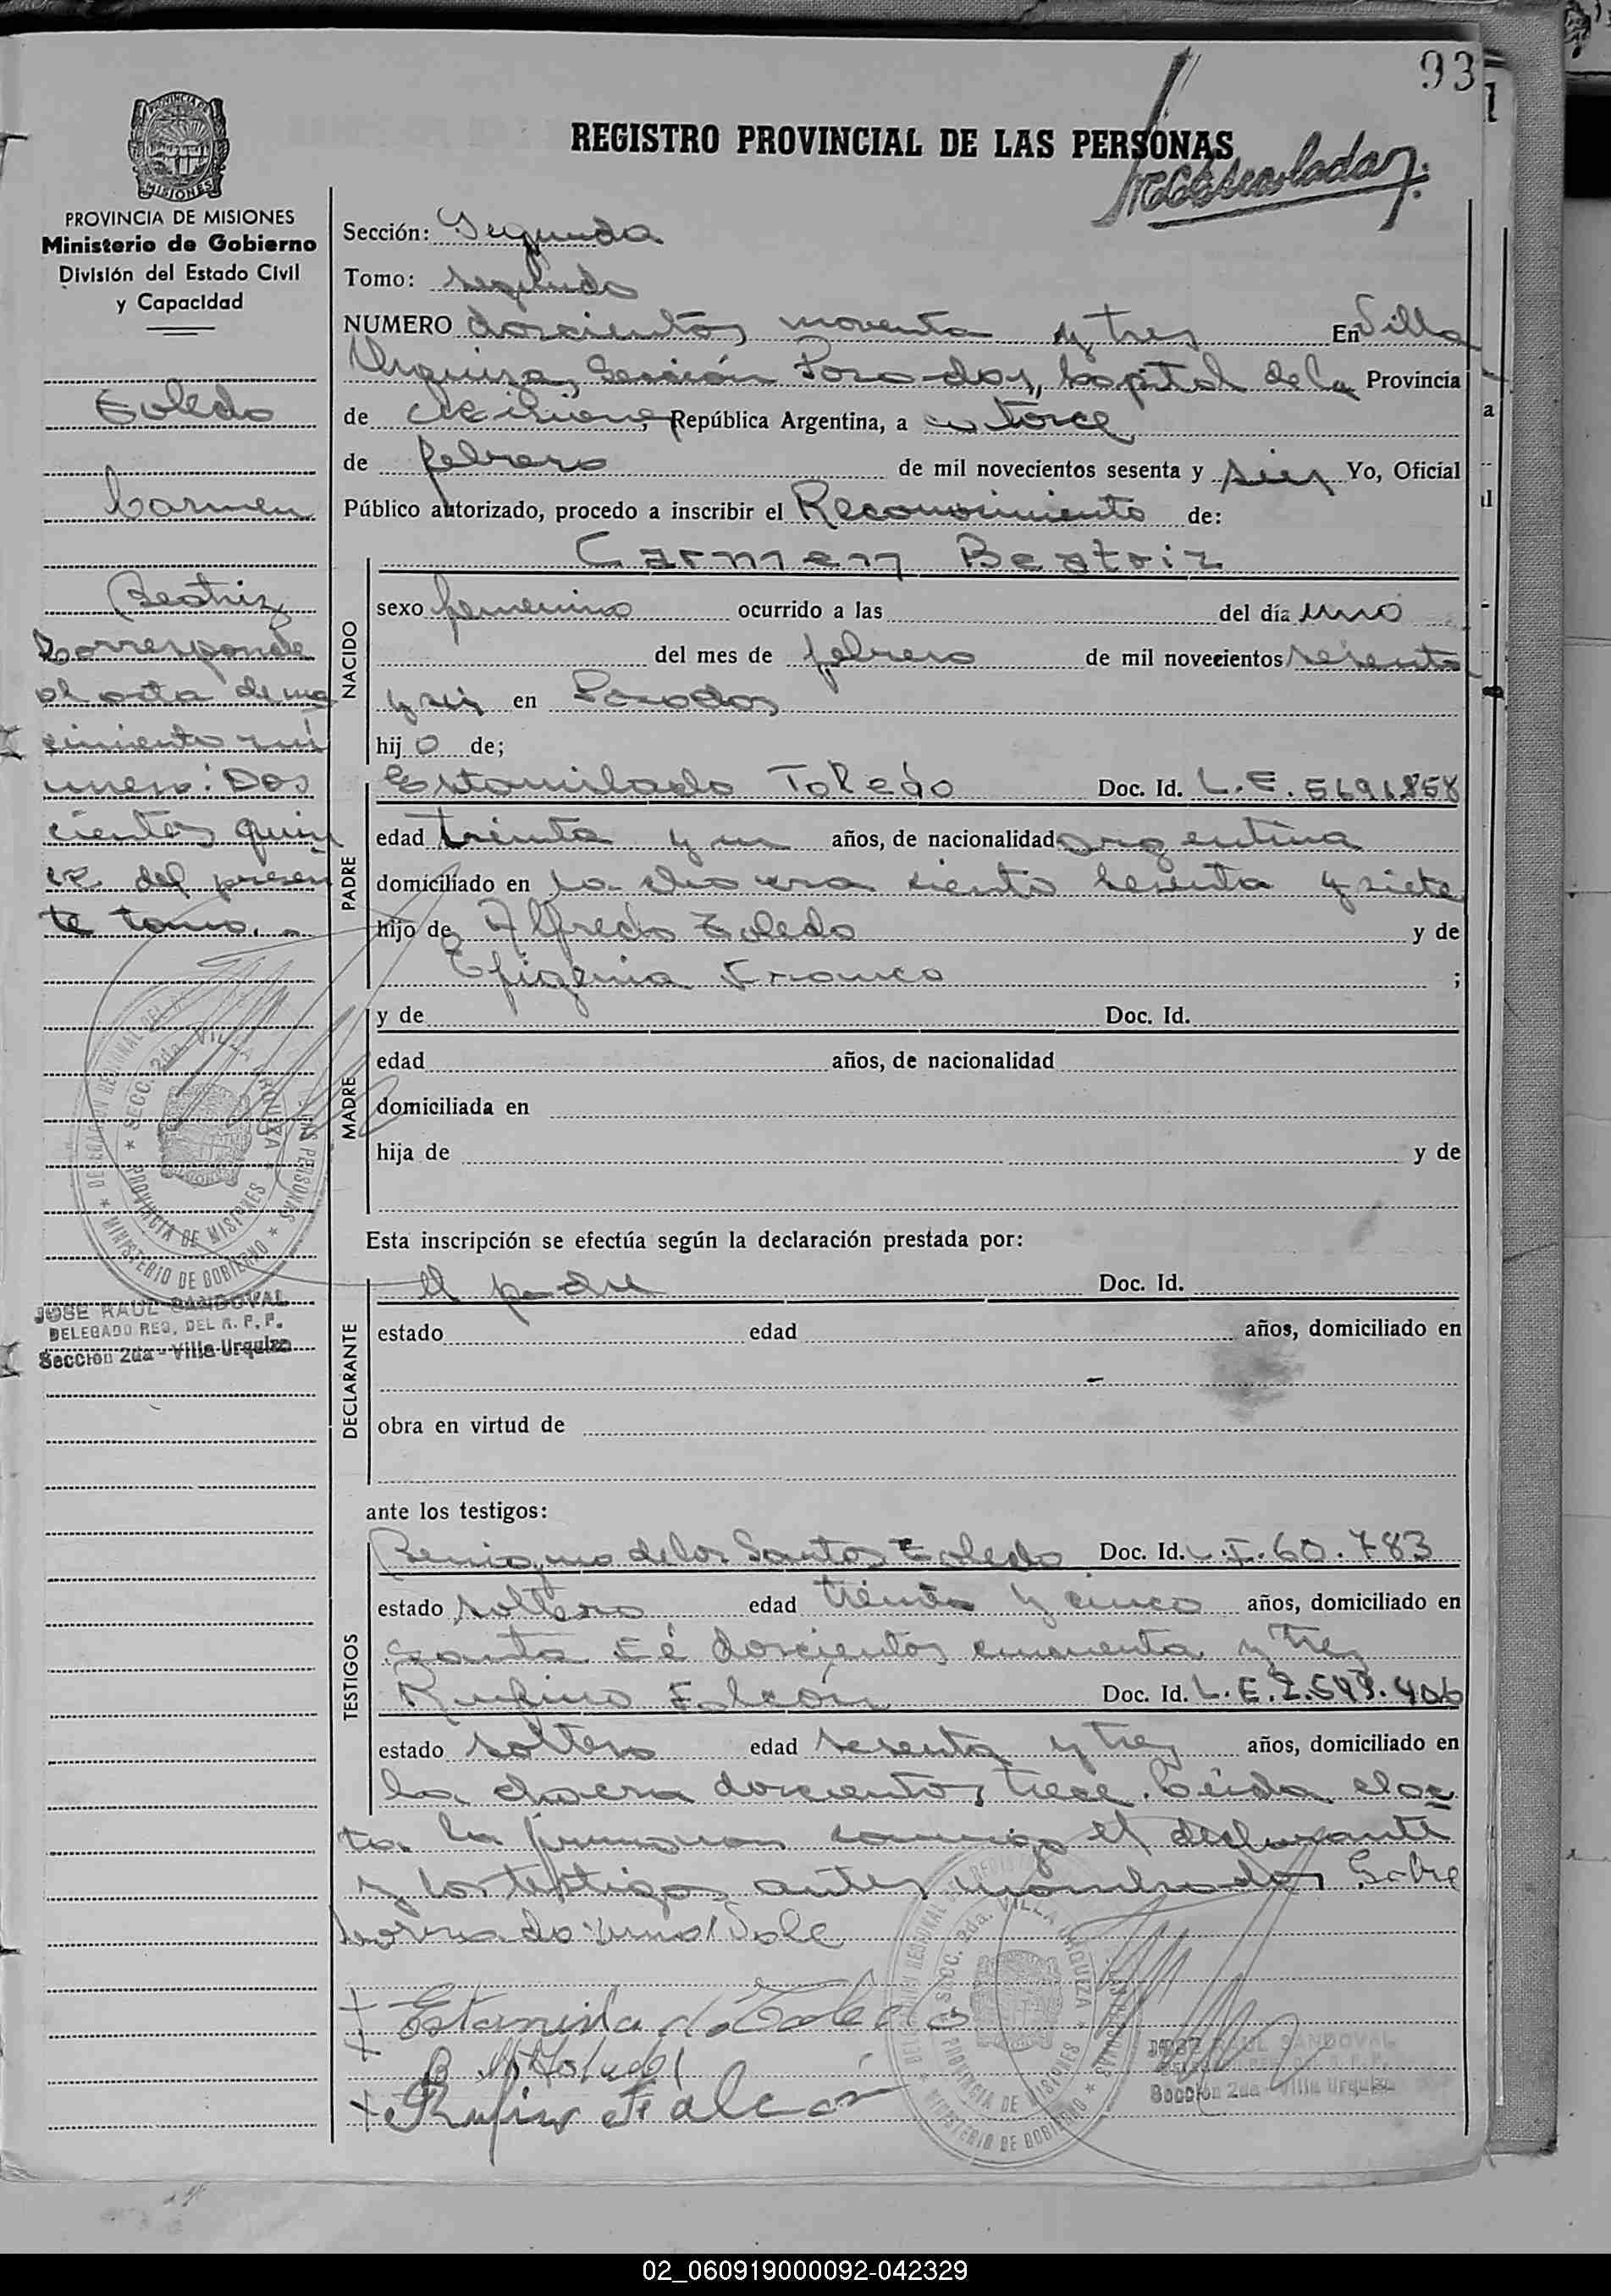 93
REGISTRO PROVINCIAL DE LAS PERSONAS
PROVINCIA DE MISIONES
Ministerio de Gobierno
División del Estado Civil
y Capacidad
Toledo
Carmen
Beatriz
Corresponde
al acta de na
cimiento nú
mero: Dos
cientos quin
ce del presen
te tomo.-
JOSE RAUL SANDOVAL
DELEGADO REG. DEL R. P. P.
Sección 2da - Villa Urquiza
Sección: Segunda
Tomo: segundo
NUMERO doscientos noventa y tres En Villa
Urquiza, Sección Posadas, Capital de la Provincia
de Misiones, República Argentina, a catorce
de febrero de mil novecientos sesenta y seis Yo, Oficial
Público autorizado, procedo a inscribir el Reconocimiento de:
Carmen Beatriz
NACIDO
sexo femenino ocurrido a las del día uno
del mes de febrero de mil novecientos sesenta
y seis en Posadas
hij o de;
PADRE
Estanilado Toledo Doc. Id. L.E. 5691858
edad treinta y un años, de nacionalidad argentina
domiciliado en la chacra ciento sesenta y siete
hijo de Alfredo Toledo y de
Efigenia Franco ;
MADRE
y de Doc. Id.
edad años, de nacionalidad
domiciliada en
hija de y de
Esta inscripción se efectúa según la declaración prestada por:
DECLARANTE
el padre Doc. Id.
estado edad años, domiciliado en
obra en virtud de
ante los testigos:
TESTIGOS
Benigno de los Santos Toledo Doc. Id. L.I. 60.783
estado soltero edad treinta y cinco años, domiciliado en
Santa Fé doscientos cincuenta y tres
Rufino Falcón Doc. Id. L.E. 2.593.406
estado soltero edad sesenta y tres años, domiciliado en
la chacra doscientos trece. Leída el ac
ta. la firmaron conmigo el declarante
y los testigos antes nombrados Sobre
borrado: uno: Vale
Estanislado Toledo
Rufino Falcón
DELEGACION REGIONAL DEL REGISTRO DE LAS PERSONAS
SECC. 2da. VILLA URQUIZA
PROVINCIA DE MISIONES
MINISTERIO DE GOBIERNO
JOSE RAUL SANDOVAL
DELEGADO REG. DEL R. P. P.
Sección 2da - Villa Urquiza
02_060919000092-042329